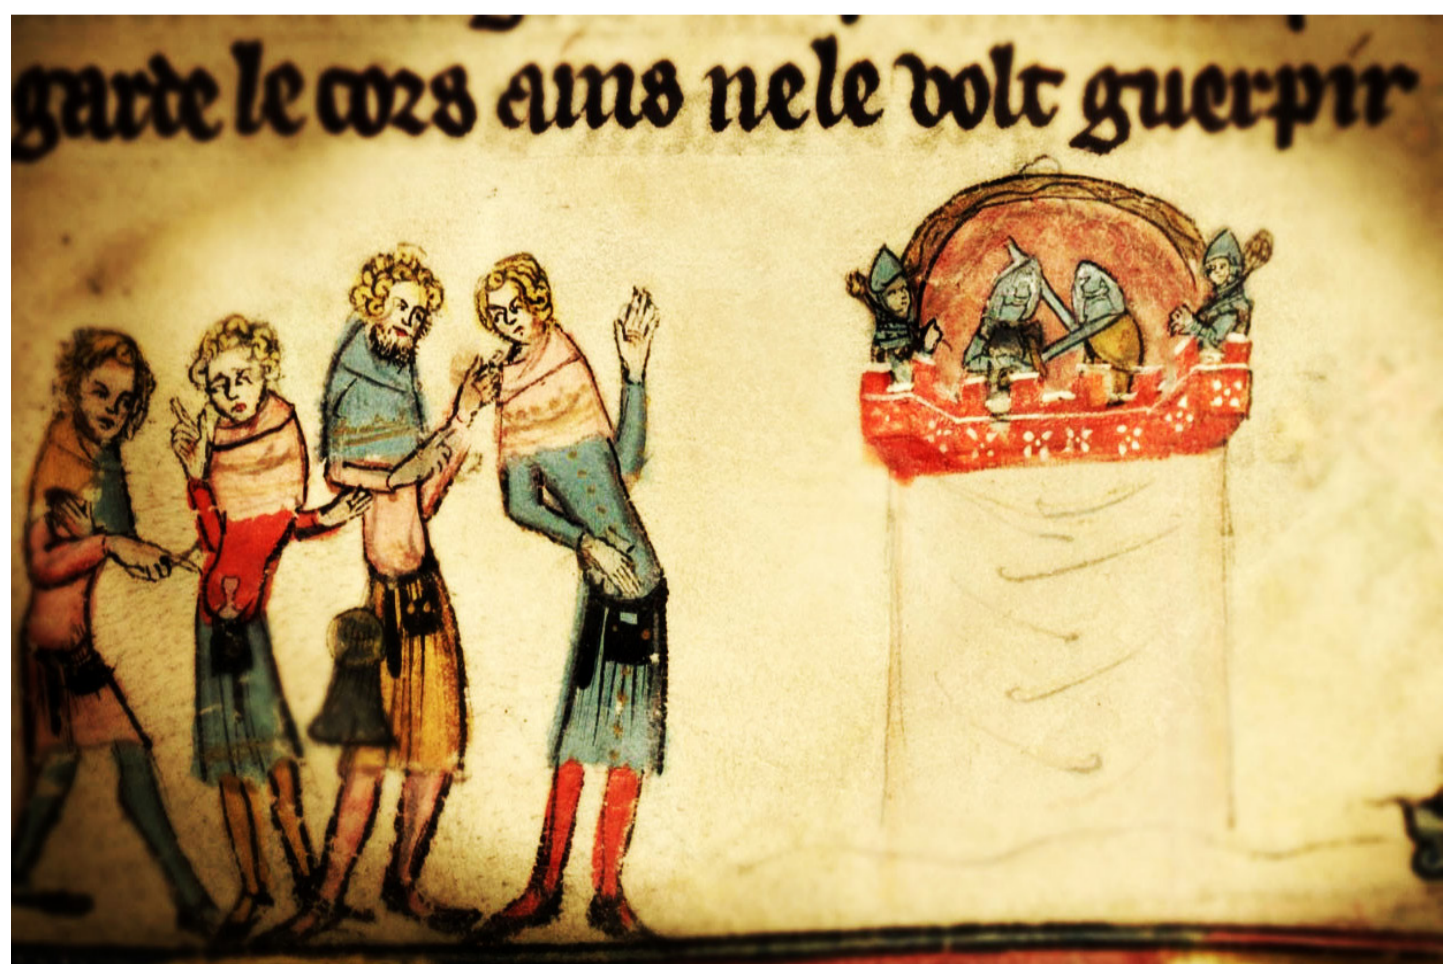 garde le cors ains ne le volt guerpir